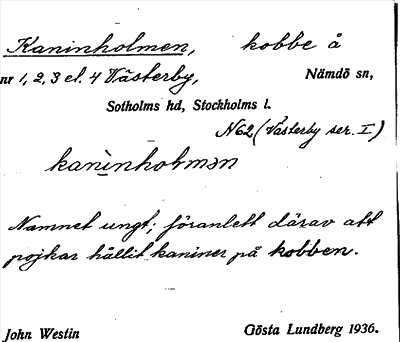 Kaninholmen, kobbe å
nr 1, 2, 3 el. 4 Västerby, Nämdö sn,
Sotholms hd, Stockholms l.
N62 (Västerby ser. I)
kaninholmən
Namnet ungt; föranlett därav att
pojkar hållit kaniner på kobben.
John Westin Gösta Lundberg 1936.